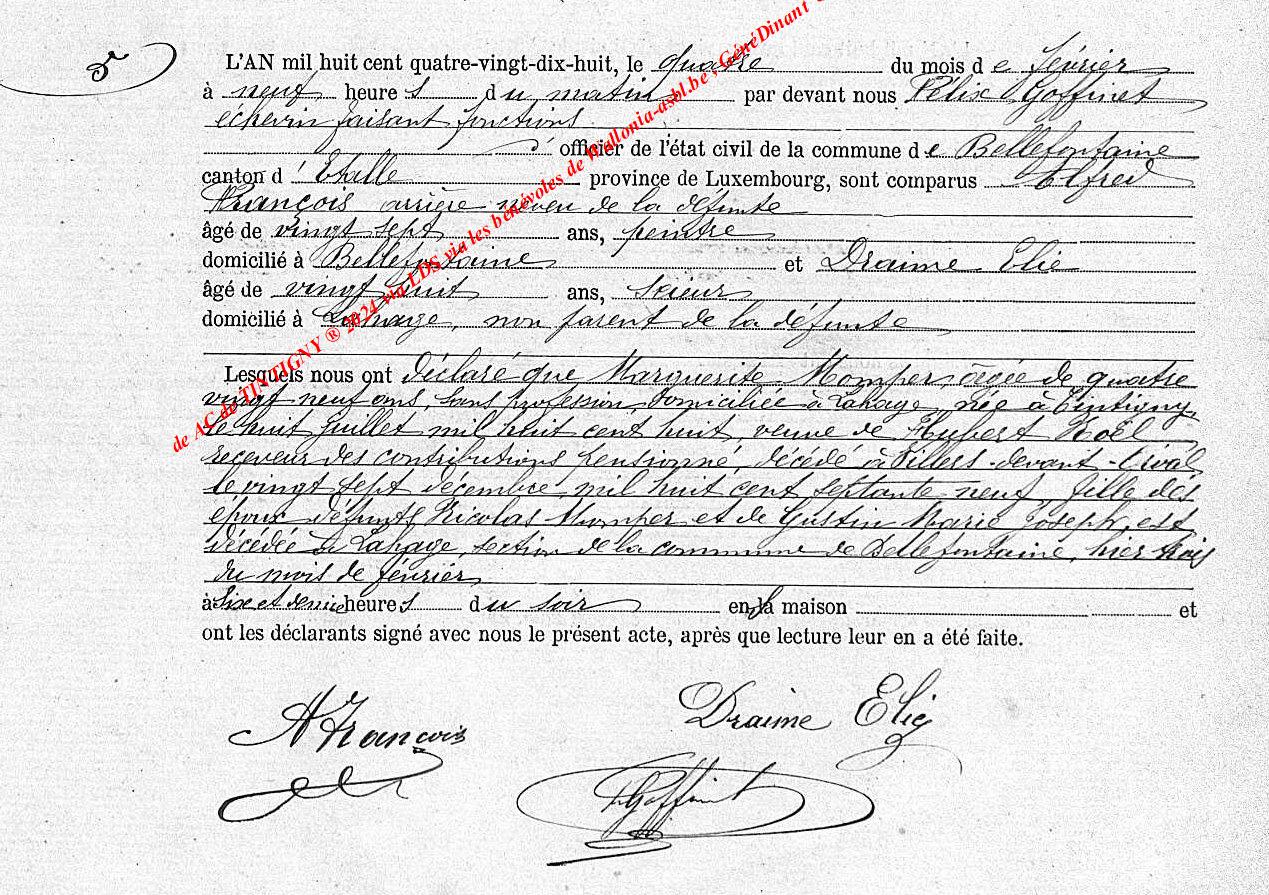 5
L'AN mil huit cent quatre-vingt-dix-huit, le quatre du mois de février
à neuf heures du matin par devant nous Félix Goffinet
échevin faisant fonctions
d'officier de l'état civil de la commune de Bellefontaine
canton d'Etalle province de Luxembourg, sont comparus Alfred
François arrière neveu de la défunte
âgé de vingt sept ans, peintre
domicilié à Bellefontaine et Draime Elie
âgé de vingt huit ans, scieur
domicilié à Lahage, non parent de la défunte
Lesquels nous ont déclaré que Marguerite Momper, âgée de quatre
vingt neuf ans, sans profession, domiciliée à Lahage, née à Tintigny,
le huit Juillet mil huit cent huit, veuve de Hubert Noël
receveur des contributions pensionné, décédé à Villers-devant-Orval
le vingt sept décembre mil huit cent septante neuf, fille des
époux défunts Nicolas Momper et de Gustin Marie Joseph, est
décédée à Lahage, section de la commune de Bellefontaine, hier trois
du mois de février
à six et demie heures du soir en sa maison et
ont les déclarants signé avec nous le présent acte, après que lecture leur en a été faite.
A François
Draime Elie
F Goffinet
de AC de TINTIGNY ® 2024 via LDS via les bénévoles de Wallonia-asbl.be , GénéDinant